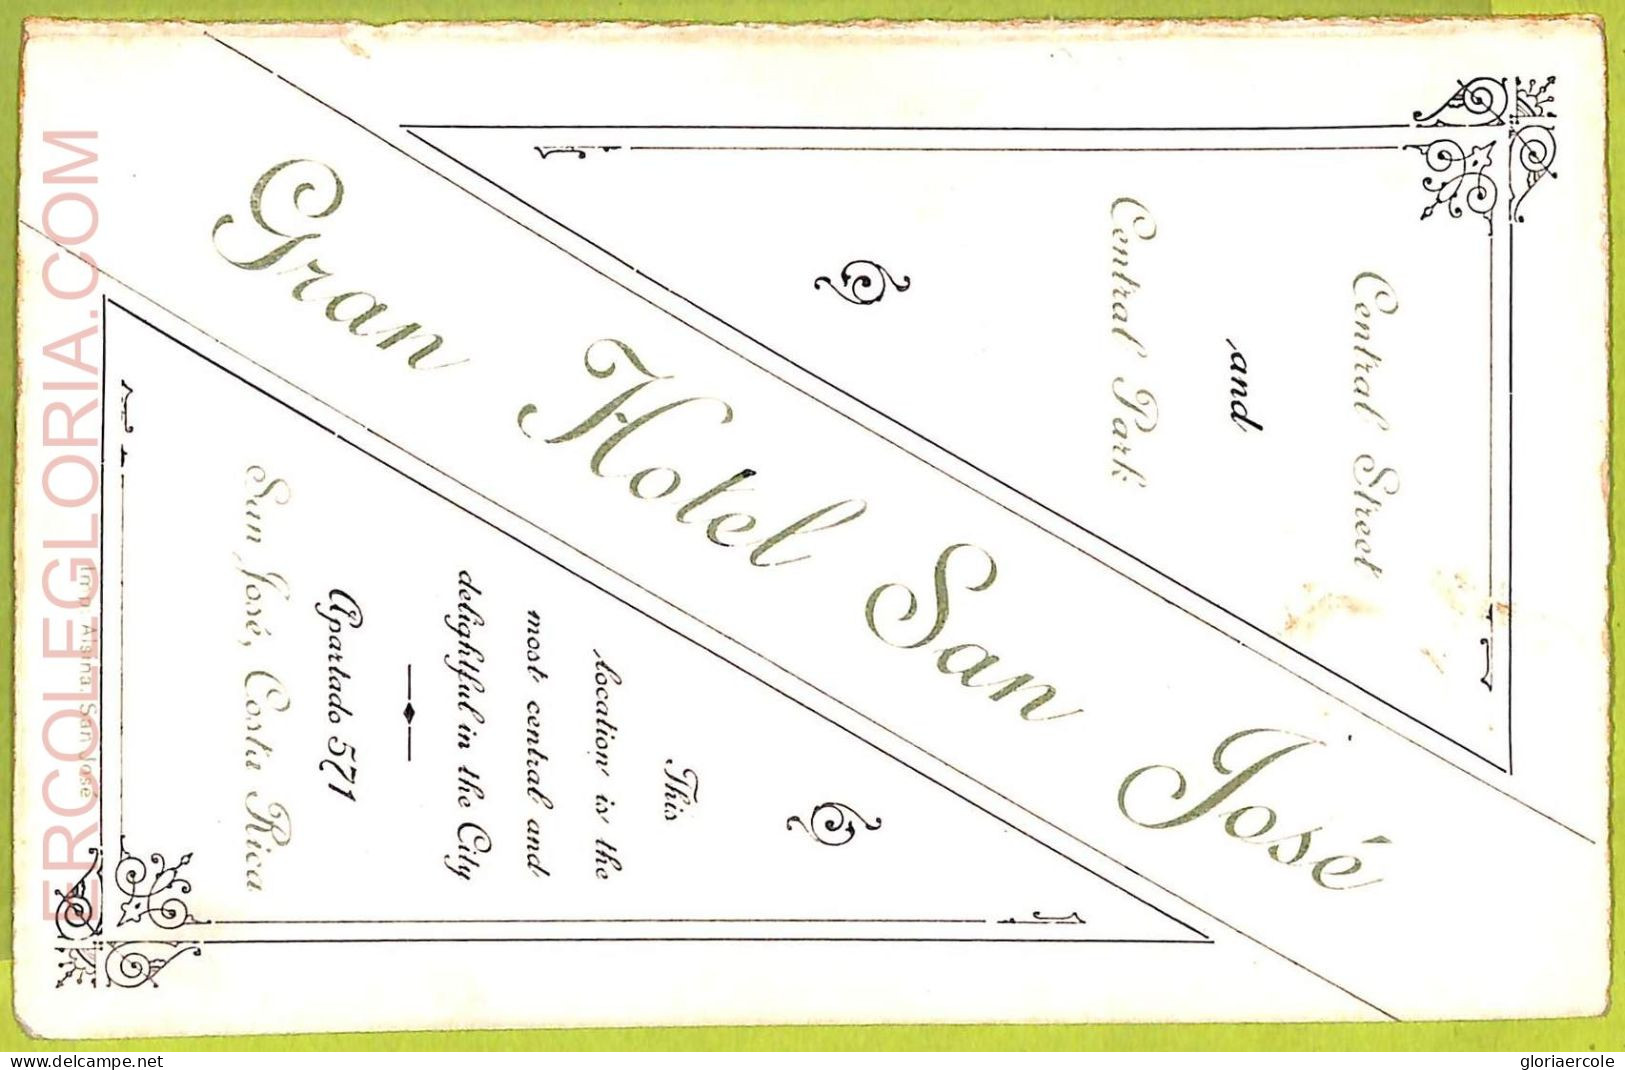 Central Street
and
Central Park
Gran Hotel San José
This
location is the
most central and
delightful in the City
Apartado 571
San José, Costa Rica
Imp. Alsina, San José
ERCOLEGLORIA.COM
delcampe.net
gloriaercole